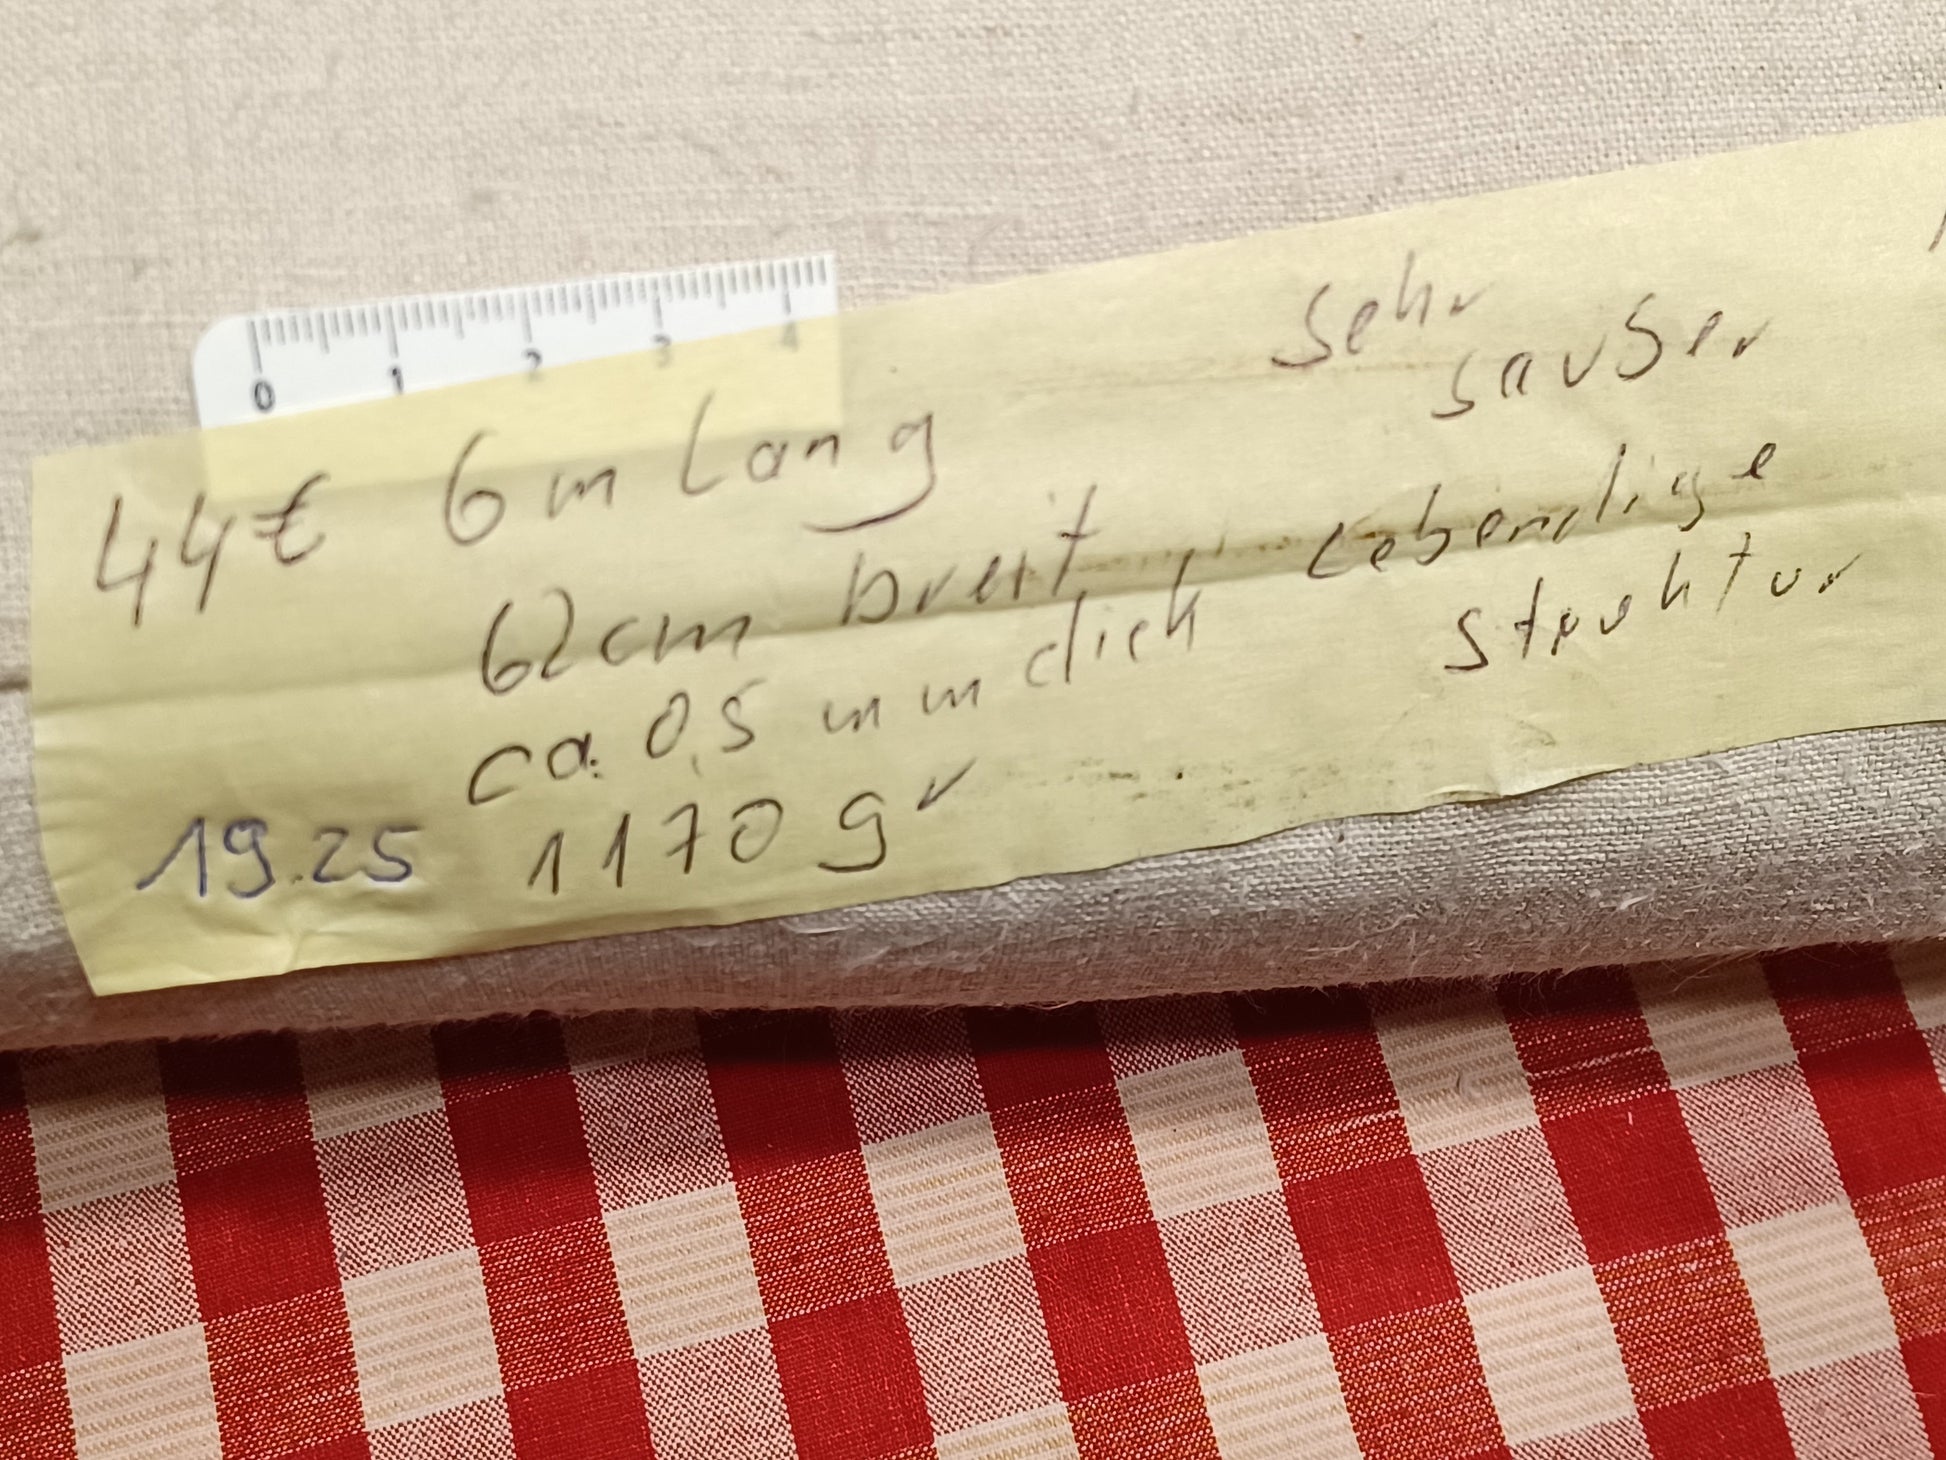 0 1 2 3 4
44€ 6m lang
62cm breit
ca. 0,5 mm dick
19.25 1170 gr
sehr
sauber
Lebendige
Struktur